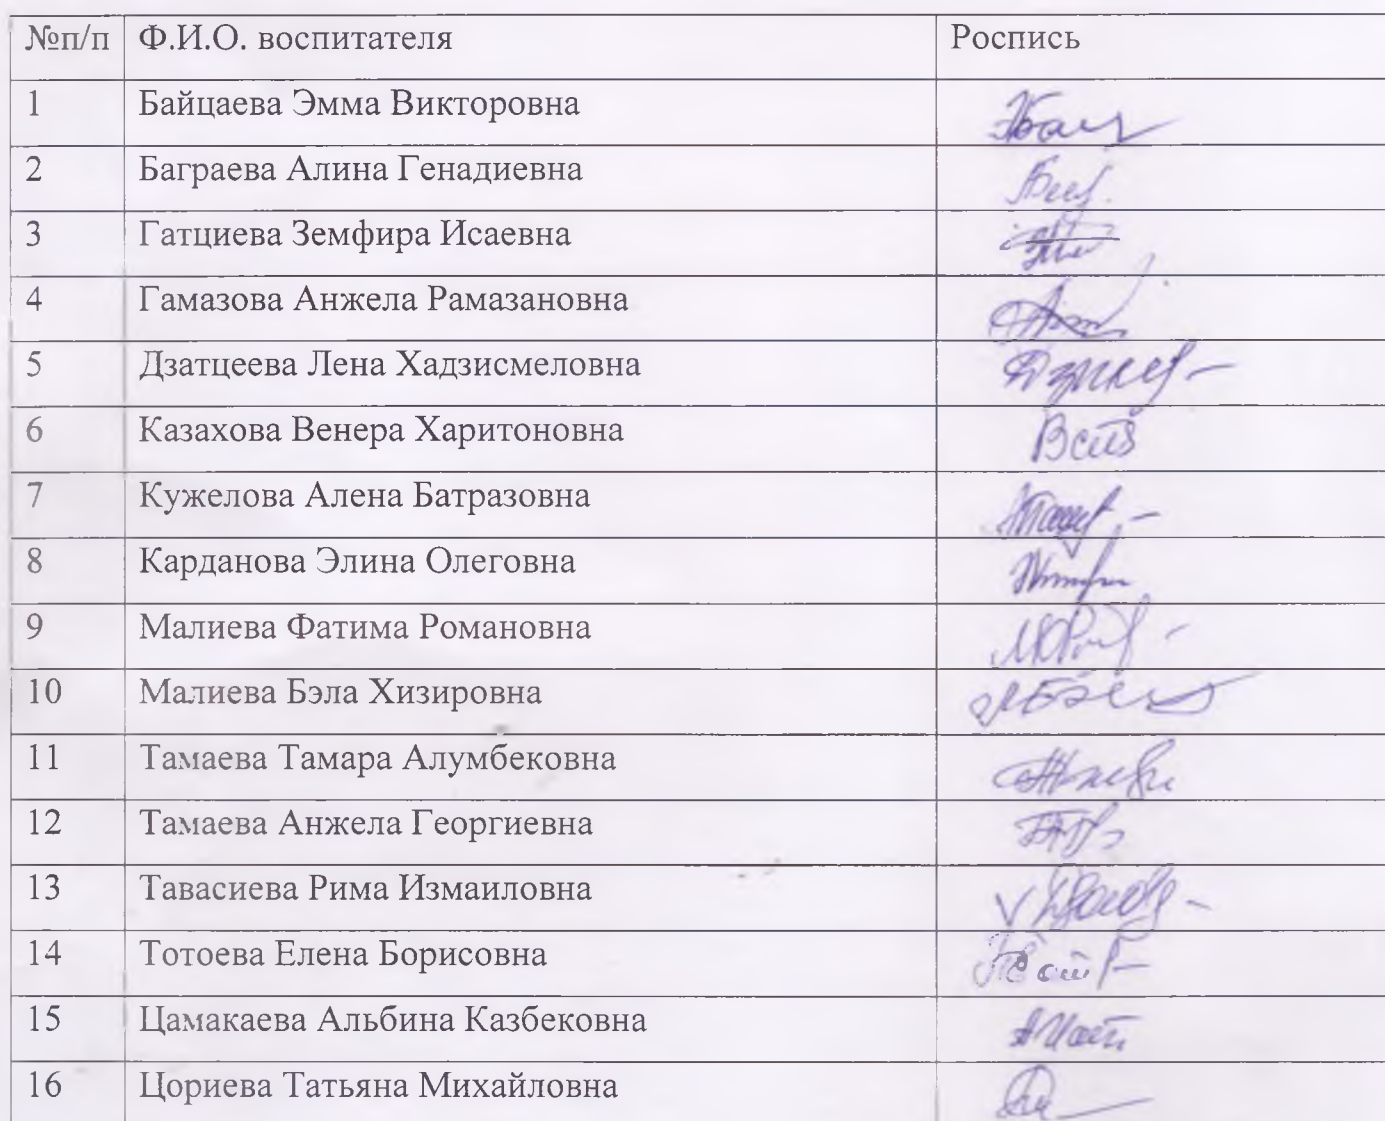 №п/п Ф.И.О. воспитателя Роспись
1 Байцаева Эмма Викторовна
2 Баграева Алина Генадиевна
3 Гатциева Земфира Исаевна
4 Гамазова Анжела Рамазановна
5 Дзатцеева Лена Хадзисмеловна
6 Казахова Венера Харитоновна
7 Кужелова Алена Батразовна
8 Карданова Элина Олеговна
9 Малиева Фатима Романовна
10 Малиева Бэла Хизировна
11 Тамаева Тамара Алумбековна
12 Тамаева Анжела Георгиевна
13 Тавасиева Рима Измаиловна
14 Тотоева Елена Борисовна
15 Цамакаева Альбина Казбековна
16 Цориева Татьяна Михайловна